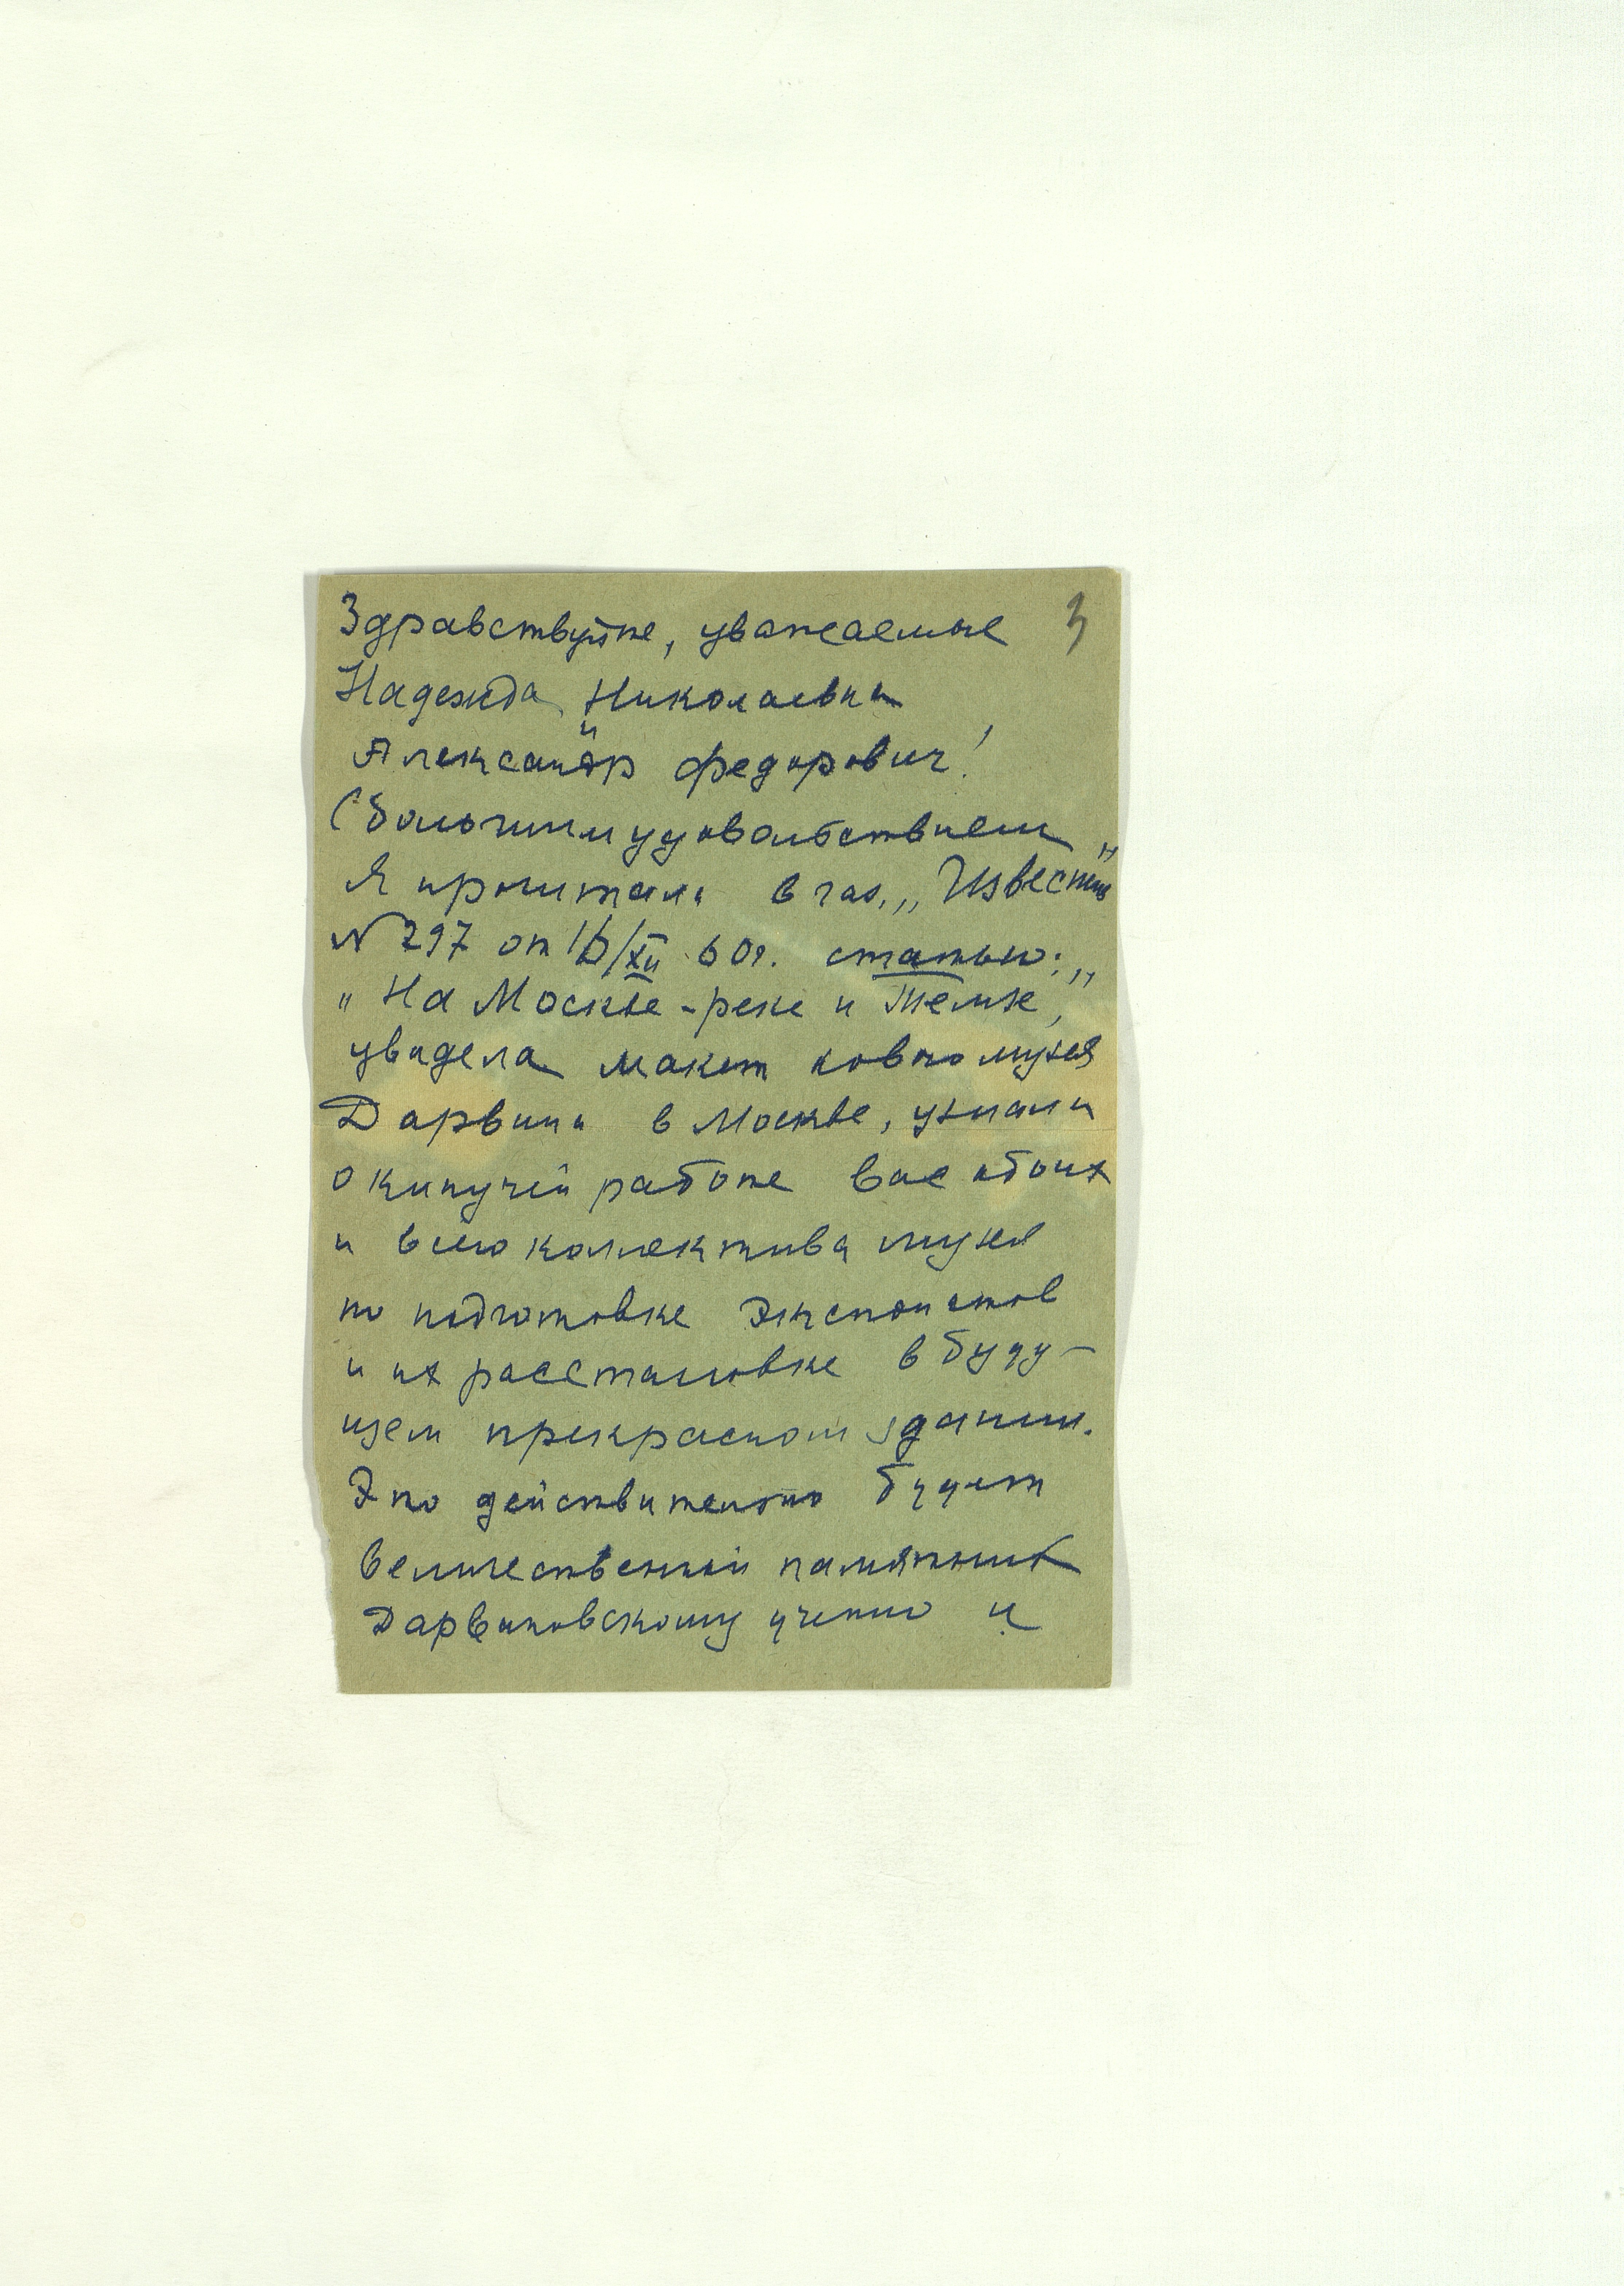 3
Здравствуйте, уважаемые
Надежда Николаевна
и
Александр Федорович!
С большим удовольствием
Я прочитала в газ. „Известия"
N 297 от 16/XII 60г. статью:
„На Москве-реке и Темзе",
увидела макет нового музея
Дарвина в Москве, узнала
о кипучей работе Вас обоих
и всего коллектива музея
по подготовке экспонатов
и их расстановке в буду-
щем прекрасном здании.
Это действительно будет
величественный памятник
Дарвиновскому учению и